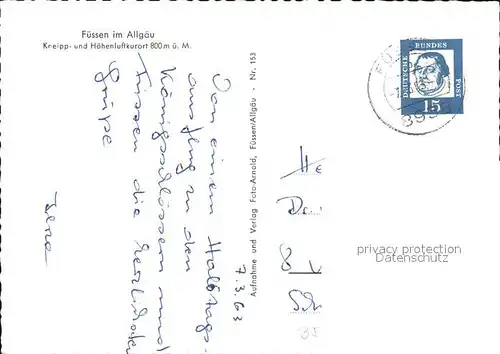 Füssen im Allgäu
Kneipp- und Höhenluftkurort 800 m ü. M.
7.3.63
Von einem Halbtags-
ausflug zu den
Königsschlössern und
Füssen die herzlichsten
Grüße
Aufnahme und Verlag Foto-Arnold, Füssen/Allgäu · Nr. 153
DEUTSCHE BUNDES POST
15
privacy protection
Datenschutz